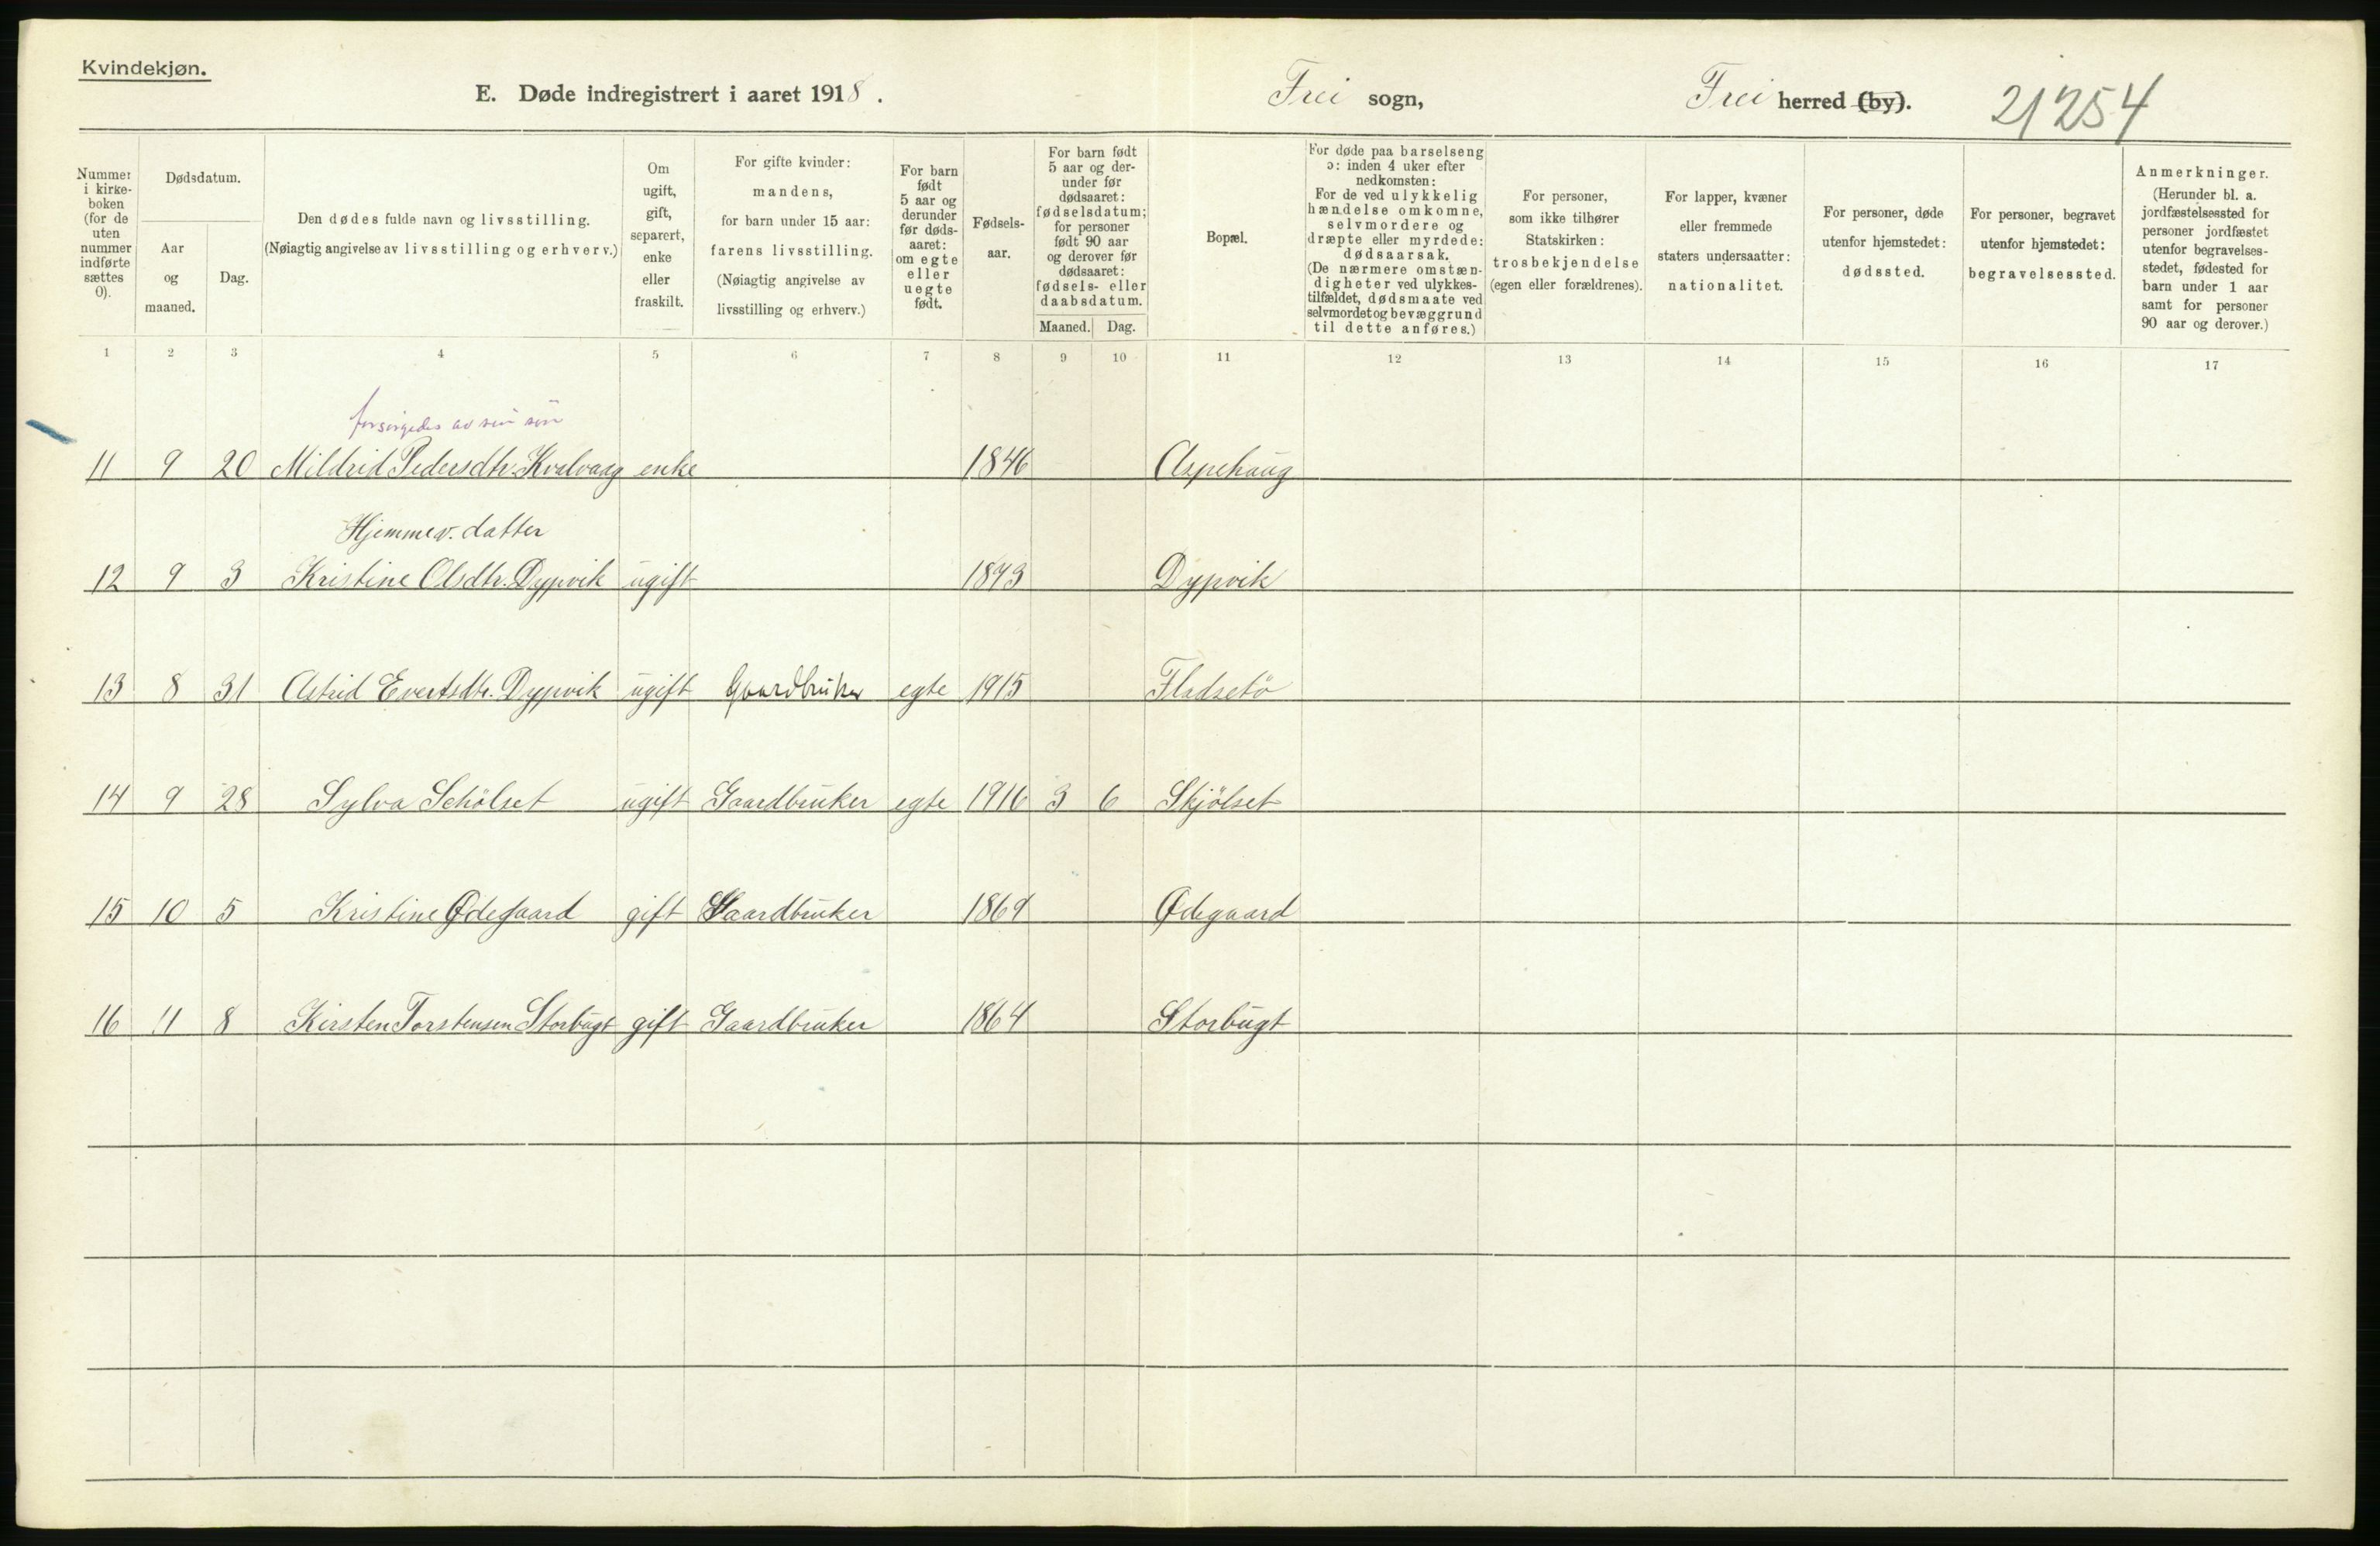 Kvindekjøn.
E. Døde indregistrert i aaret 1918.
Frei sogn,
Frei herred (by).
21254
Nummer i kirke-boken (for de uten nummer indførte sættes 0).
Dødsdatum.
Aar og maaned.
Dag.
Den dødes fulde navn og livsstilling.
(Nøiagtig angivelse av livsstilling og erhverv.)
Om ugift, gift, separert, enke eller fraskilt.
For gifte kvinder: mandens, for barn under 15 aar: farens livsstilling. (Nøiagtig angivelse av livsstilling og erhverv.)
For barn født 5 aar og derunder før døds-aaret: om egte eller uegte født.
Fødsels-aar.
For barn født 5 aar og der-under før dødsaaret: fødselsdatum; for personer født 90 aar og derover før dødsaaret: fødsels- eller daabsdatum.
Maaned. Dag.
Bopæl.
For døde paa barselseng ɔ: inden 4 uker efter nedkomsten: For de ved ulykkelig hændelse omkomne, selvmordere og dræpte eller myrdede: dødsaarsak. (De nærmere omstæn-digheter ved ulykkes-tilfældet, dødsmaate ved selvmordet og bevæggrund til dette anføres.)
For personer, som ikke tilhører Statskirken: trosbekjendelse (egen eller forældrenes).
For lapper, kvæner eller fremmede staters undersaatter: nationalitet.
For personer, døde utenfor hjemstedet: dødssted.
For personer, begravet utenfor hjemstedet: begravelsessted.
Anmerkninger. (Herunder bl. a. jordfæstelsessted for personer jordfæstet utenfor begravelses-stedet, fødested for barn under 1 aar samt for personer 90 aar og derover.)
1 2 3 4 5 6 7 8 9 10 11 12 13 14 15 16 17
forsørgedes av sin sön
11 9 20 Mildrid Pedersdtr. Kvalvaag enke 1846 Aspehaug
Hjemmev. datter
12 9 3 Kristine Olsdtr. Dypvik ugift 1893 Dypvik
13 8 31 Astrid Evertsdtr. Dypvik ugift Gaardbruker egte 1915 Fladsetö
14 9 28 Sylva Schölset ugift Gaardbruker egte 1916 3 6 Skjölset
15 10 5 Kristine Ødegaard gift Gaardbruker 1869 Ødegaard
16 11 8 Kirsten Torstensen Storbugt gift Gaardbruker 1864 Storbugt